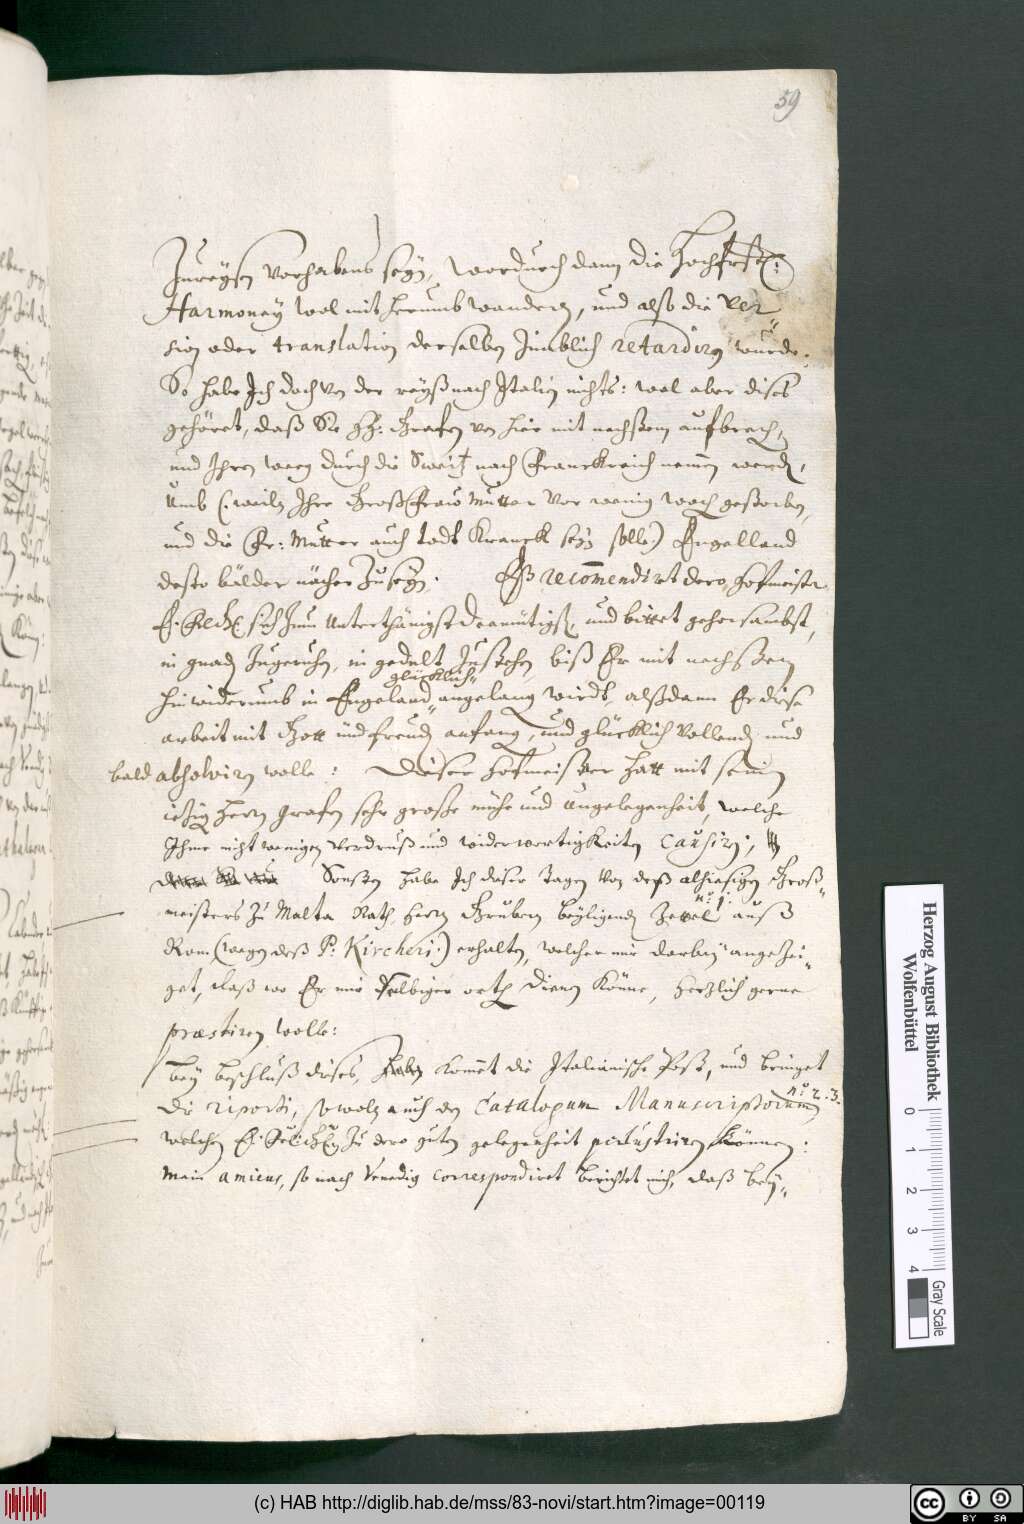 59
Zureysen vorhabens seyn, wordurch dann die Hochfrstl:
Harmoney wol mit herumb wandern, und alß die Ver„
sion oder translation derselben zimblich retardirn wurde.
So habe Ich doch von der reyß nach Italien nichts: wol aber dises
gehöret, daß die HH: Grafen von hier mit nechstem aufbrechen,
und Ihren weeg durch die Sweitz nach Franckreich nemen werden,
umb (: weiln Ihre Groß Fraw Mutter vor wenig wochen gestorben,
und die Fr: Mutter auch todt Kranck seyn solle) Engelland
desto bälder näher zu seyn. Eß recomendirt dero Hofmeister
sich zum Unterthänigst demütigst, und bittet gehorsambst,
in gnaden zugeruhen, in gedult zustehen, biß Er mit nechstem
glücklich„
hinwiderumb in Engeland„ angelangen wirdt, alßdann Er dise
arbeit mit Gott und freuden anfangen, und glücklich vollenden und
bald absolvirn wolle: Dieser Hofmeister hatt mit seinen
iezigen Herrn Grafen sehr grosse mühe und ungelegenheit, welche
Ihme nicht wenigen verdruß und widerwertigkeiten causirn;
Sonsten habe Ich diser tagen von deß alhiesigen Groß„
no. 1.
meisters zu Malta Rath, Herrn Gruben beyligenden Zettel auß
Rom (wegen deß P. Kircheri:) erhalten, welcher mir darbey angezei„
get, daß wo Er mir selbiger orthen dienen Könne, herzlich gerne
præstiren wolle:
Bey beschluß dises, Kommet die Italianische Post, und bringet
no. 2. 3.
die riporti, sowoln auch den Catalogum Manuscriptorum,
welchen zu dero guten gelegenheit perlustriren Können:
Mein amicus, so nach Venedig correspondiret berichtet mich, daß bey„
Herzog August Bibliothek
Wolfenbüttel
0 1 2 3 4
Gray Scale
(c) HAB http://diglib.hab.de/mss/83-novi/start.htm?image=00119
cc BY SA